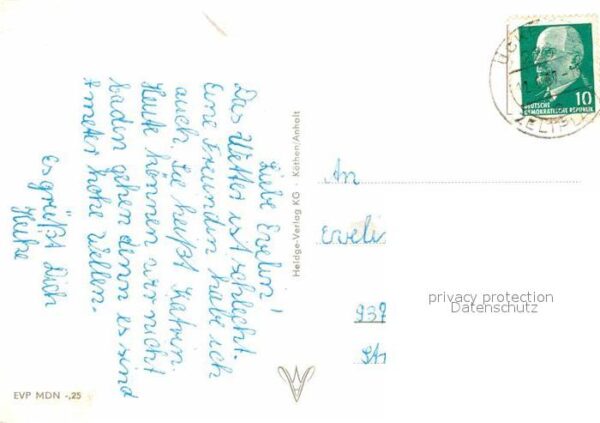 Liebe Evelin!
Das Wetter ist schlecht.
Eine Freundin habe ich
auch. Sie heißt Katrin.
Heute können wir nicht
baden gehen denn es sind
1 meter hohe Wellen.
es grüßt Dich
Heike
Heldge-Verlag KG · Köthen/Anhalt
An
Eveli
937
Str
10
DEUTSCHE
DEMOKRATISCHE REPUBLIK
ZELTPLA
privacy protection
Datenschutz
EVP MDN -,25